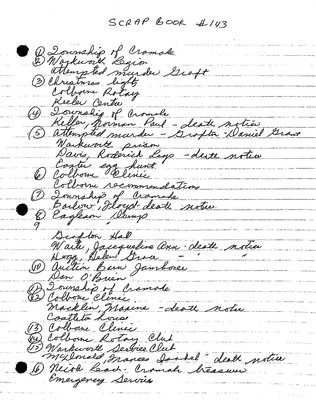 SCRAP BOOK #143
① Township of Cramahe
② Warkworth Legion
Attempted murder Graft
③ Christmas lights
Colborne Rotary
Keeler Center
④ Township of Cramahe
Keller, Norman Paul - death notice
⑤ Attempted murder - Grafton Daniel Grant
Warkworth prison
Davis, Roderick - death notice
Easter egg hunt
⑥ Colborne Clinic
Colborne recommendations
⑦ Township of Cramahe
Barlow, Floyd death notice
⑧ Eagleson Dump
9
Grafton Hall
Waite, Jacqueline Ann - death notice
Hogg, Helen Grace - " "
⑩ Auction Barn Jamboree
Don O'Brien
⑪ Township of Cramahe
⑫ Colborne Clinic.
Macklin, Maxine - death notice
Castleton
⑬ Colborne Clinic
⑭ Colborne Rotary Club
⑮ Warkworth Service Club
McDonald, Frances Isabel - death notice
⑯ Cramahe treasurer
Emergency Service